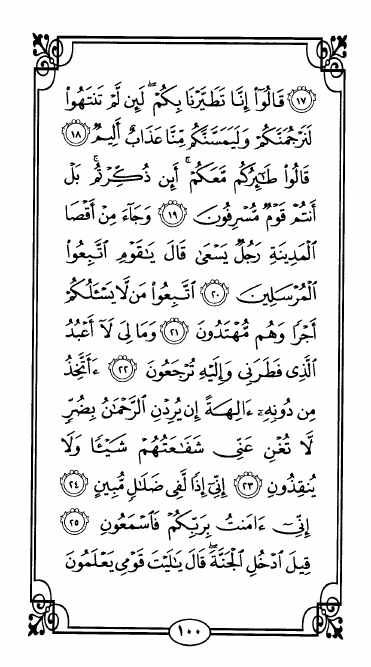 ﴿١٧﴾ قَالُوٓا۟ إِنَّا تَطَيَّرْنَا بِكُمْ ۖ لَئِن لَّمْ تَنتَهُوا۟
لَنَرْجُمَنَّكُمْ وَلَيَمَسَّنَّكُم مِّنَّا عَذَابٌ أَلِيمٌ ﴿١٨﴾
قَالُوا۟ طَـٰٓئِرُكُم مَّعَكُمْ ۚ أَئِن ذُكِّرْتُم ۚ بَلْ
أَنتُمْ قَوْمٌ مُّسْرِفُونَ ﴿١٩﴾ وَجَآءَ مِنْ أَقْصَا
ٱلْمَدِينَةِ رَجُلٌ يَسْعَىٰ قَالَ يَـٰقَوْمِ ٱتَّبِعُوا۟
ٱلْمُرْسَلِينَ ﴿٢٠﴾ ٱتَّبِعُوا۟ مَن لَّا يَسْـَٔلُكُمْ
أَجْرًا وَهُم مُّهْتَدُونَ ﴿٢١﴾ وَمَا لِىَ لَآ أَعْبُدُ
ٱلَّذِى فَطَرَنِى وَإِلَيْهِ تُرْجَعُونَ ﴿٢٢﴾ ءَأَتَّخِذُ
مِن دُونِهِۦٓ ءَالِهَةً إِن يُرِدْنِ ٱلرَّحْمَـٰنُ بِضُرٍّ
لَّا تُغْنِ عَنِّى شَفَـٰعَتُهُمْ شَيْـًٔا وَلَا
يُنقِذُونِ ﴿٢٣﴾ إِنِّىٓ إِذًا لَّفِى ضَلَـٰلٍ مُّبِينٍ ﴿٢٤﴾
إِنِّىٓ ءَامَنتُ بِرَبِّكُمْ فَٱسْمَعُونِ ﴿٢٥﴾
قِيلَ ٱدْخُلِ ٱلْجَنَّةَ ۖ قَالَ يَـٰلَيْتَ قَوْمِى يَعْلَمُونَ
١٠٠